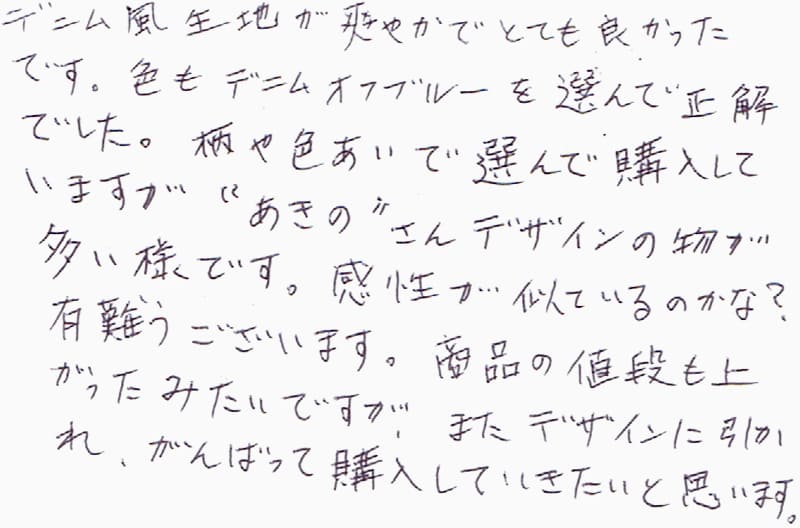 デニム風生地が爽やかでとても良かった
です。色もデニムオフブルーを選んで正解
でした。柄や色あいで選んで購入して
いますが“あきの”さんデザインの物が
多い様です。感性が似ているのかな?
有難うございます。商品の値段も上
がったみたいですが、またデザインに引か
れ、がんばって購入していきたいと思います。